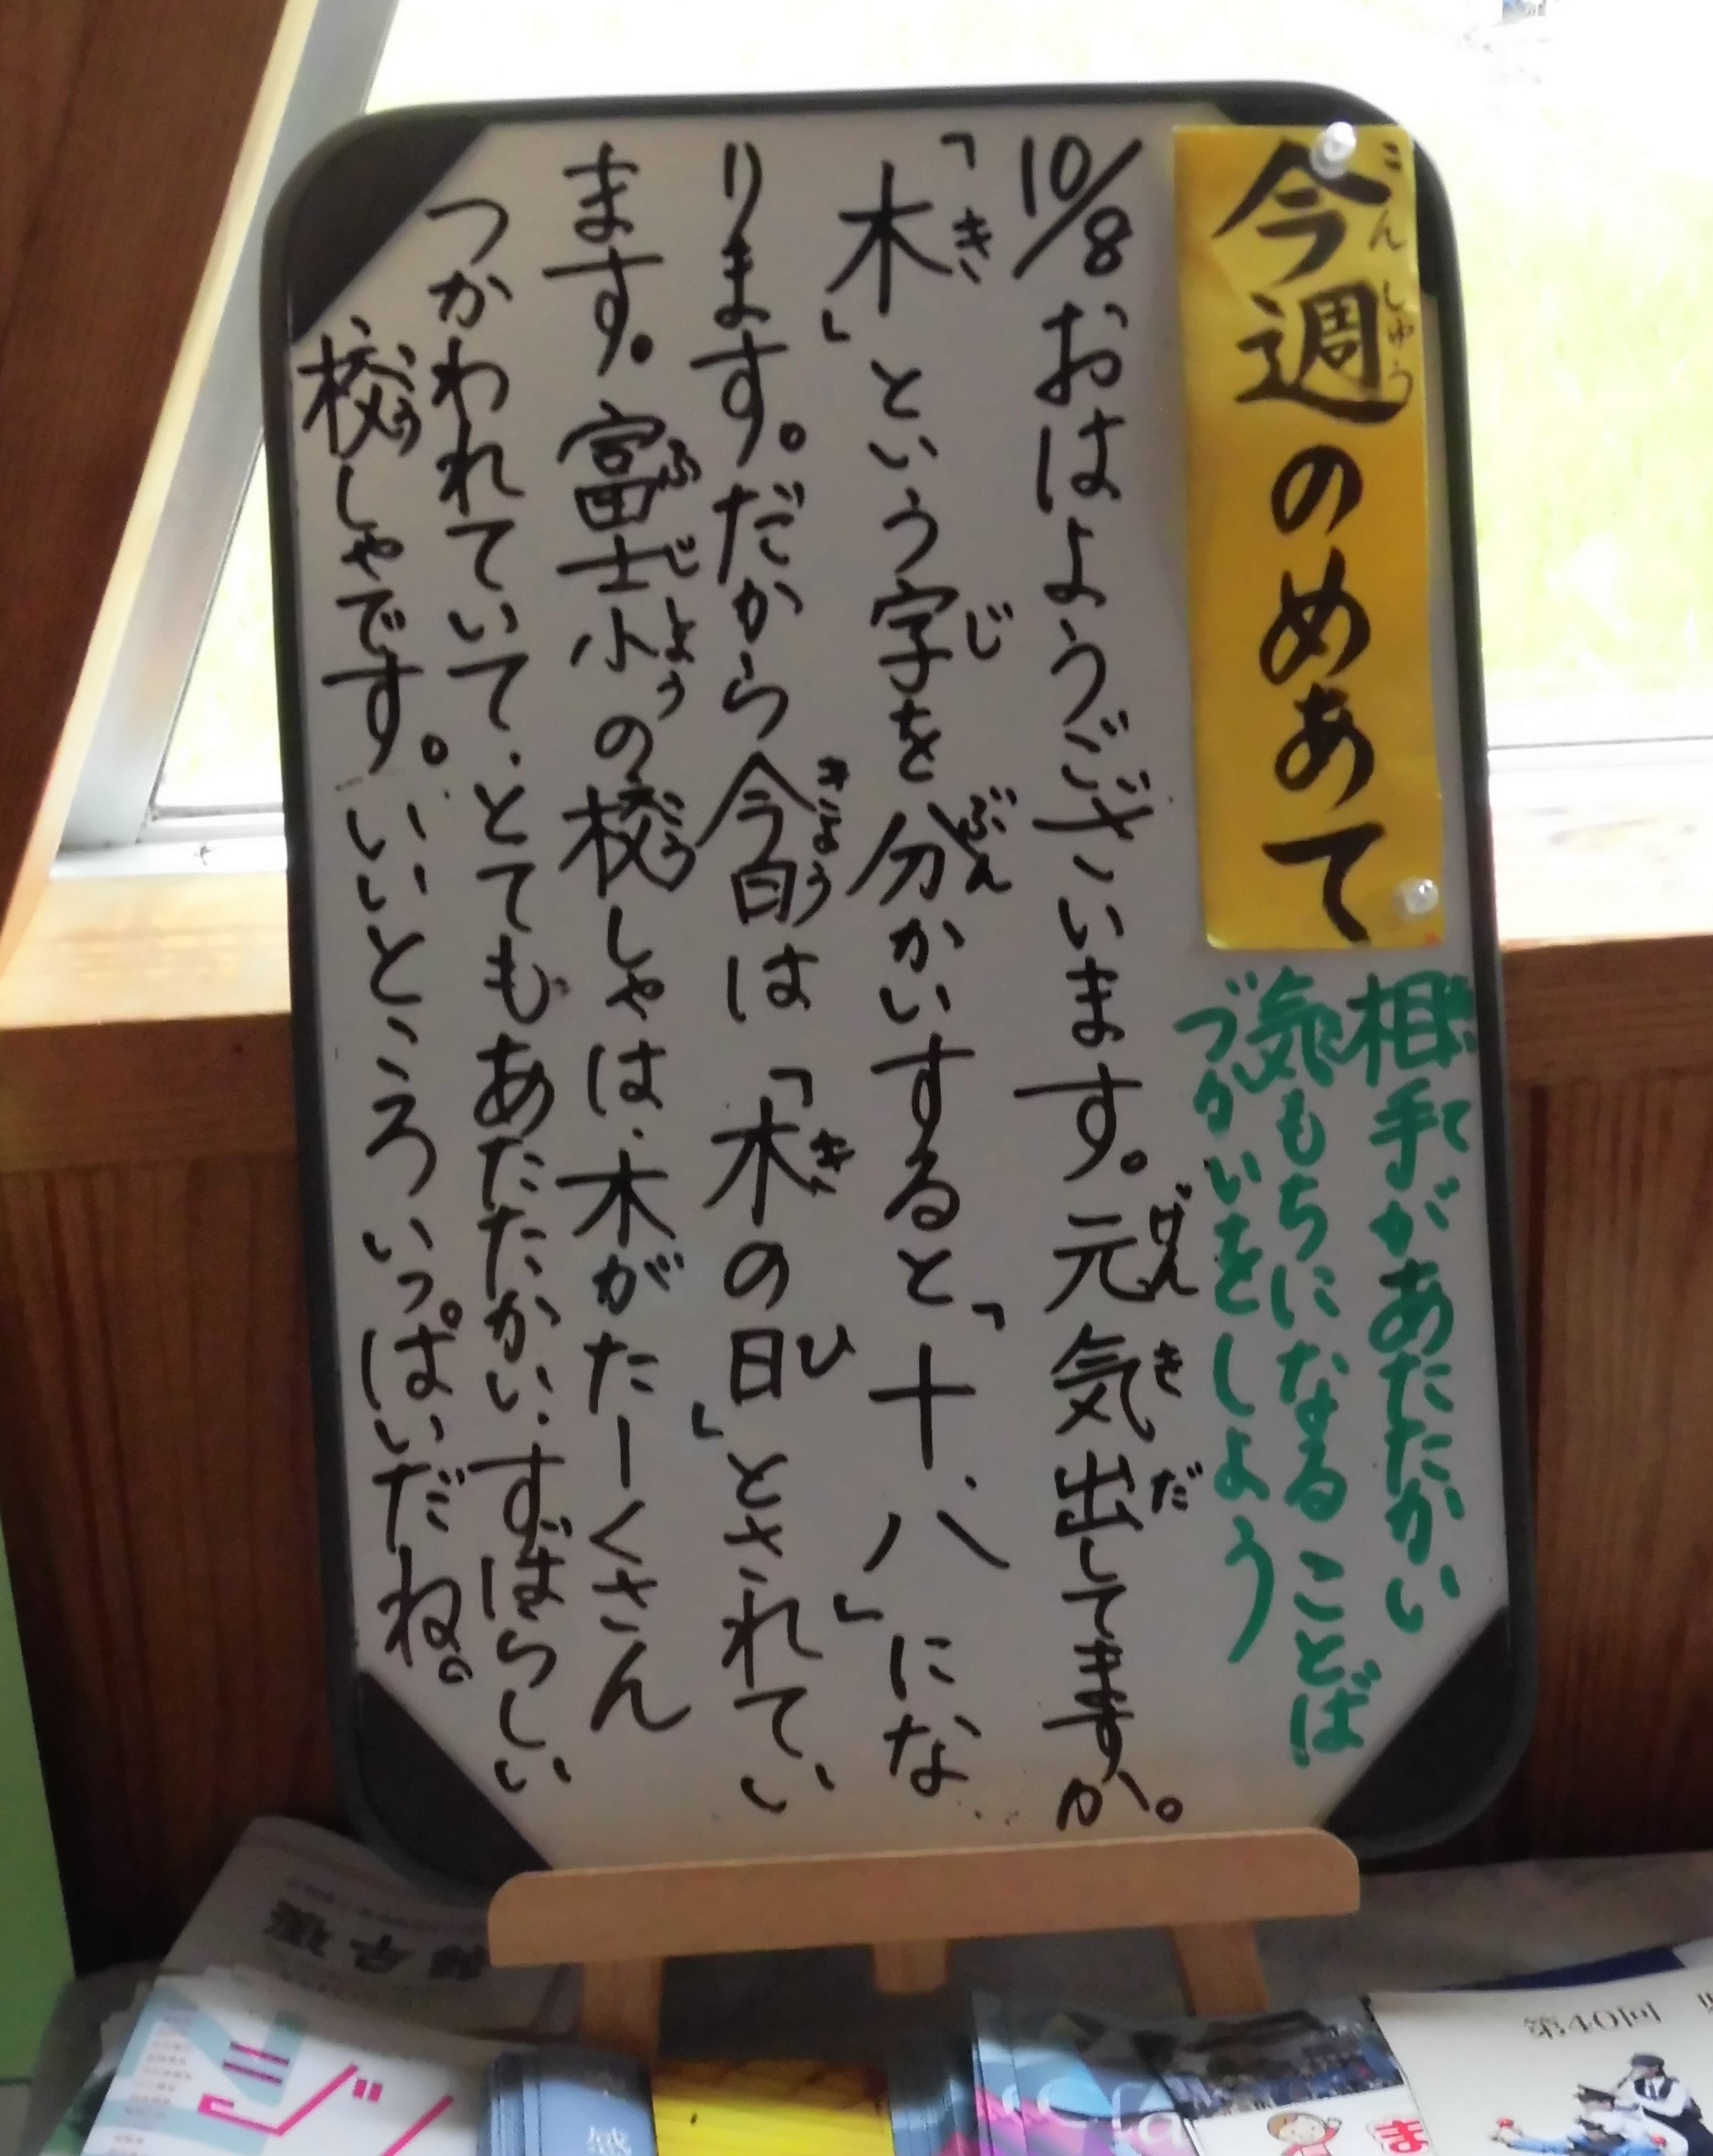 今週のめあて
相手があたたかい
気もちになることば
づかいをしよう
10/8おはようございます。元気出してますか。
「木」という字を分かいすると「十、八」にな
ります。だから今日は「木の日」とされてい
ます。富士小の校しゃは、木がたーくさん
つかわれていて、とてもあたたかい、すばらしい
校しゃです。いいところいっぱいだね。
第40回
ジン
感
ま